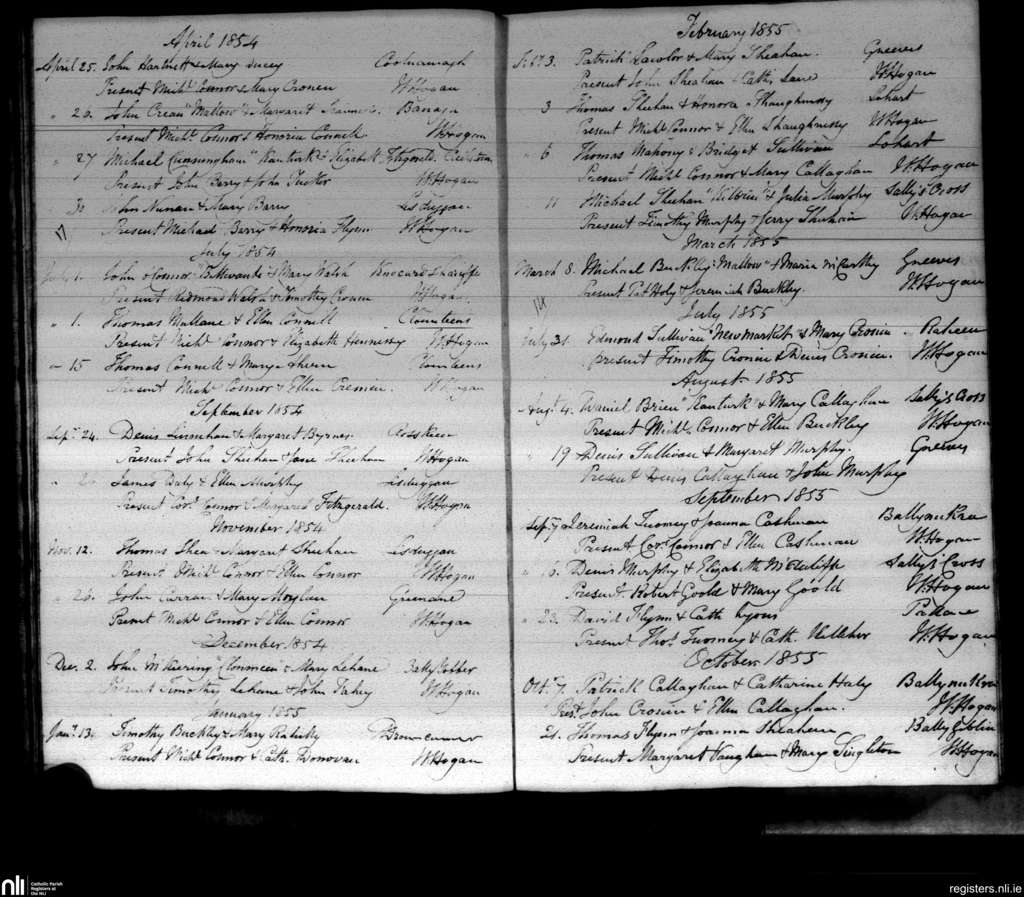 April 1854
April 25. John Hartnett & Mary Ducey Coolnamagh
Present Michl Connor & Mary Cronen W. Hogan
" 26. John Crean "Mallow" & Margaret Banagh
Present Michl Connor & Honoria Connell W. Hogan
" 27 Michael Cunningham "Kanturk" & Elizabeth Fitzgerald.
Present John Berry & John Tucker W. Hogan
" 30 John Nunan & Mary Barry Lisduggan
Present Michael Berry & Honoria Flynn W. Hogan
17
July 1854
July 1. John OConnor & Mary Walsh
Present Redmond Walsh & Timothy Cronen W. Hogan.
" 1. Thomas Mullane & Ellen Connell Clounteens
Present Michl Connor & Elizabeth Hennessy W. Hogan
" 15 Thomas Connell & Mary Ahern Clounteens
Present Michl Connor & Ellen Cremen. W. Hogan
September 1854
Sepr 24. Denis Linnehan & Margaret Byrnes Ross
Present John Sheehan & Jane Sheehan W. Hogan
" James Daly & Ellen Lisduggan
Present Cors Connor & Margaret Fitzgerald. W. Hogan
November 1854
Nov. 12. Thomas Shea & Margaret Sheehan Lisduggan
Present Michl Connor & Ellen Connor W. Hogan
" John Curran & Mary Moylan
Present Michl Connor & Ellen Connor W. Hogan
December 1854
Dec. 2. John "Clonmeen" & Mary Lehane
Present Timothy Lehane & John Fahey W. Hogan
January 1855
Jany. 13. Timothy Buckley & Mary
Present Michl Connor & Cath. Donovan W. Hogan
February 1855
Feb. 3. Patrick Lawlor & Mary Sheehan. Greeves
Present John Sheehan & Cathe Lane W. Hogan
3 Thomas Sheehan & Honora Shaughnessy Lohort
Present Michl Connor & Ellen Shaughnessy W Hogan
" 6 Thomas Mahony & Bridget Sullivan Lohort
Present Michl Connor & Mary Callaghan W. Hogan
11 Michael Sheehan & Julia Murphy Sally's Cross
Present Timothy Murphy & Jerry Sheehan W. Hogan
March 1855
March 8. Michael Buckley "Mallow" & Maria McCarthy Greeves
Present Pat Foly & Jeremiah Buckley. W. Hogan
July 1855
July 21. Edmond Sullivan "Newmarket" & Mary Cronin Raheen
present Timothy Cronin & Denis Cronin. W. Hogan
August 1855
Augt 4. Daniel Brien "Kanturk" & Mary Callaghan Sally's Cross
Present Michl. Connor & Ellen Buckley W. Hogan
" 19 Denis Sullivan & Margaret Murphy. Greeves
Present Denis Callaghan & John Murphy
September 1855
Sepr. 7 Jeremiah Twomey & Joanna Cashman
Present Cors Connor & Ellen Cashman W. Hogan
" Denis Murphy & Elizabeth McAuliffe Sally's Cross
Present Robert Goold & Mary Goold W. Hogan
" 23. David Flynn & Cath Lyons Pallane
Present Thos. Twomey & Cath. Kelleher W. Hogan
October 1855
Octr. 7. Patrick Callaghan & Catharine Haly
Prest. John Cronin & Ellen Callaghan. W. Hogan
" 21. Thomas Flynn & Joanna Sheahan Ballygiblin
Present Margaret Vaughan & Mary Singleton W. Hogan
nli Catholic Parish
Registers at
the NLI
registers.nli.ie